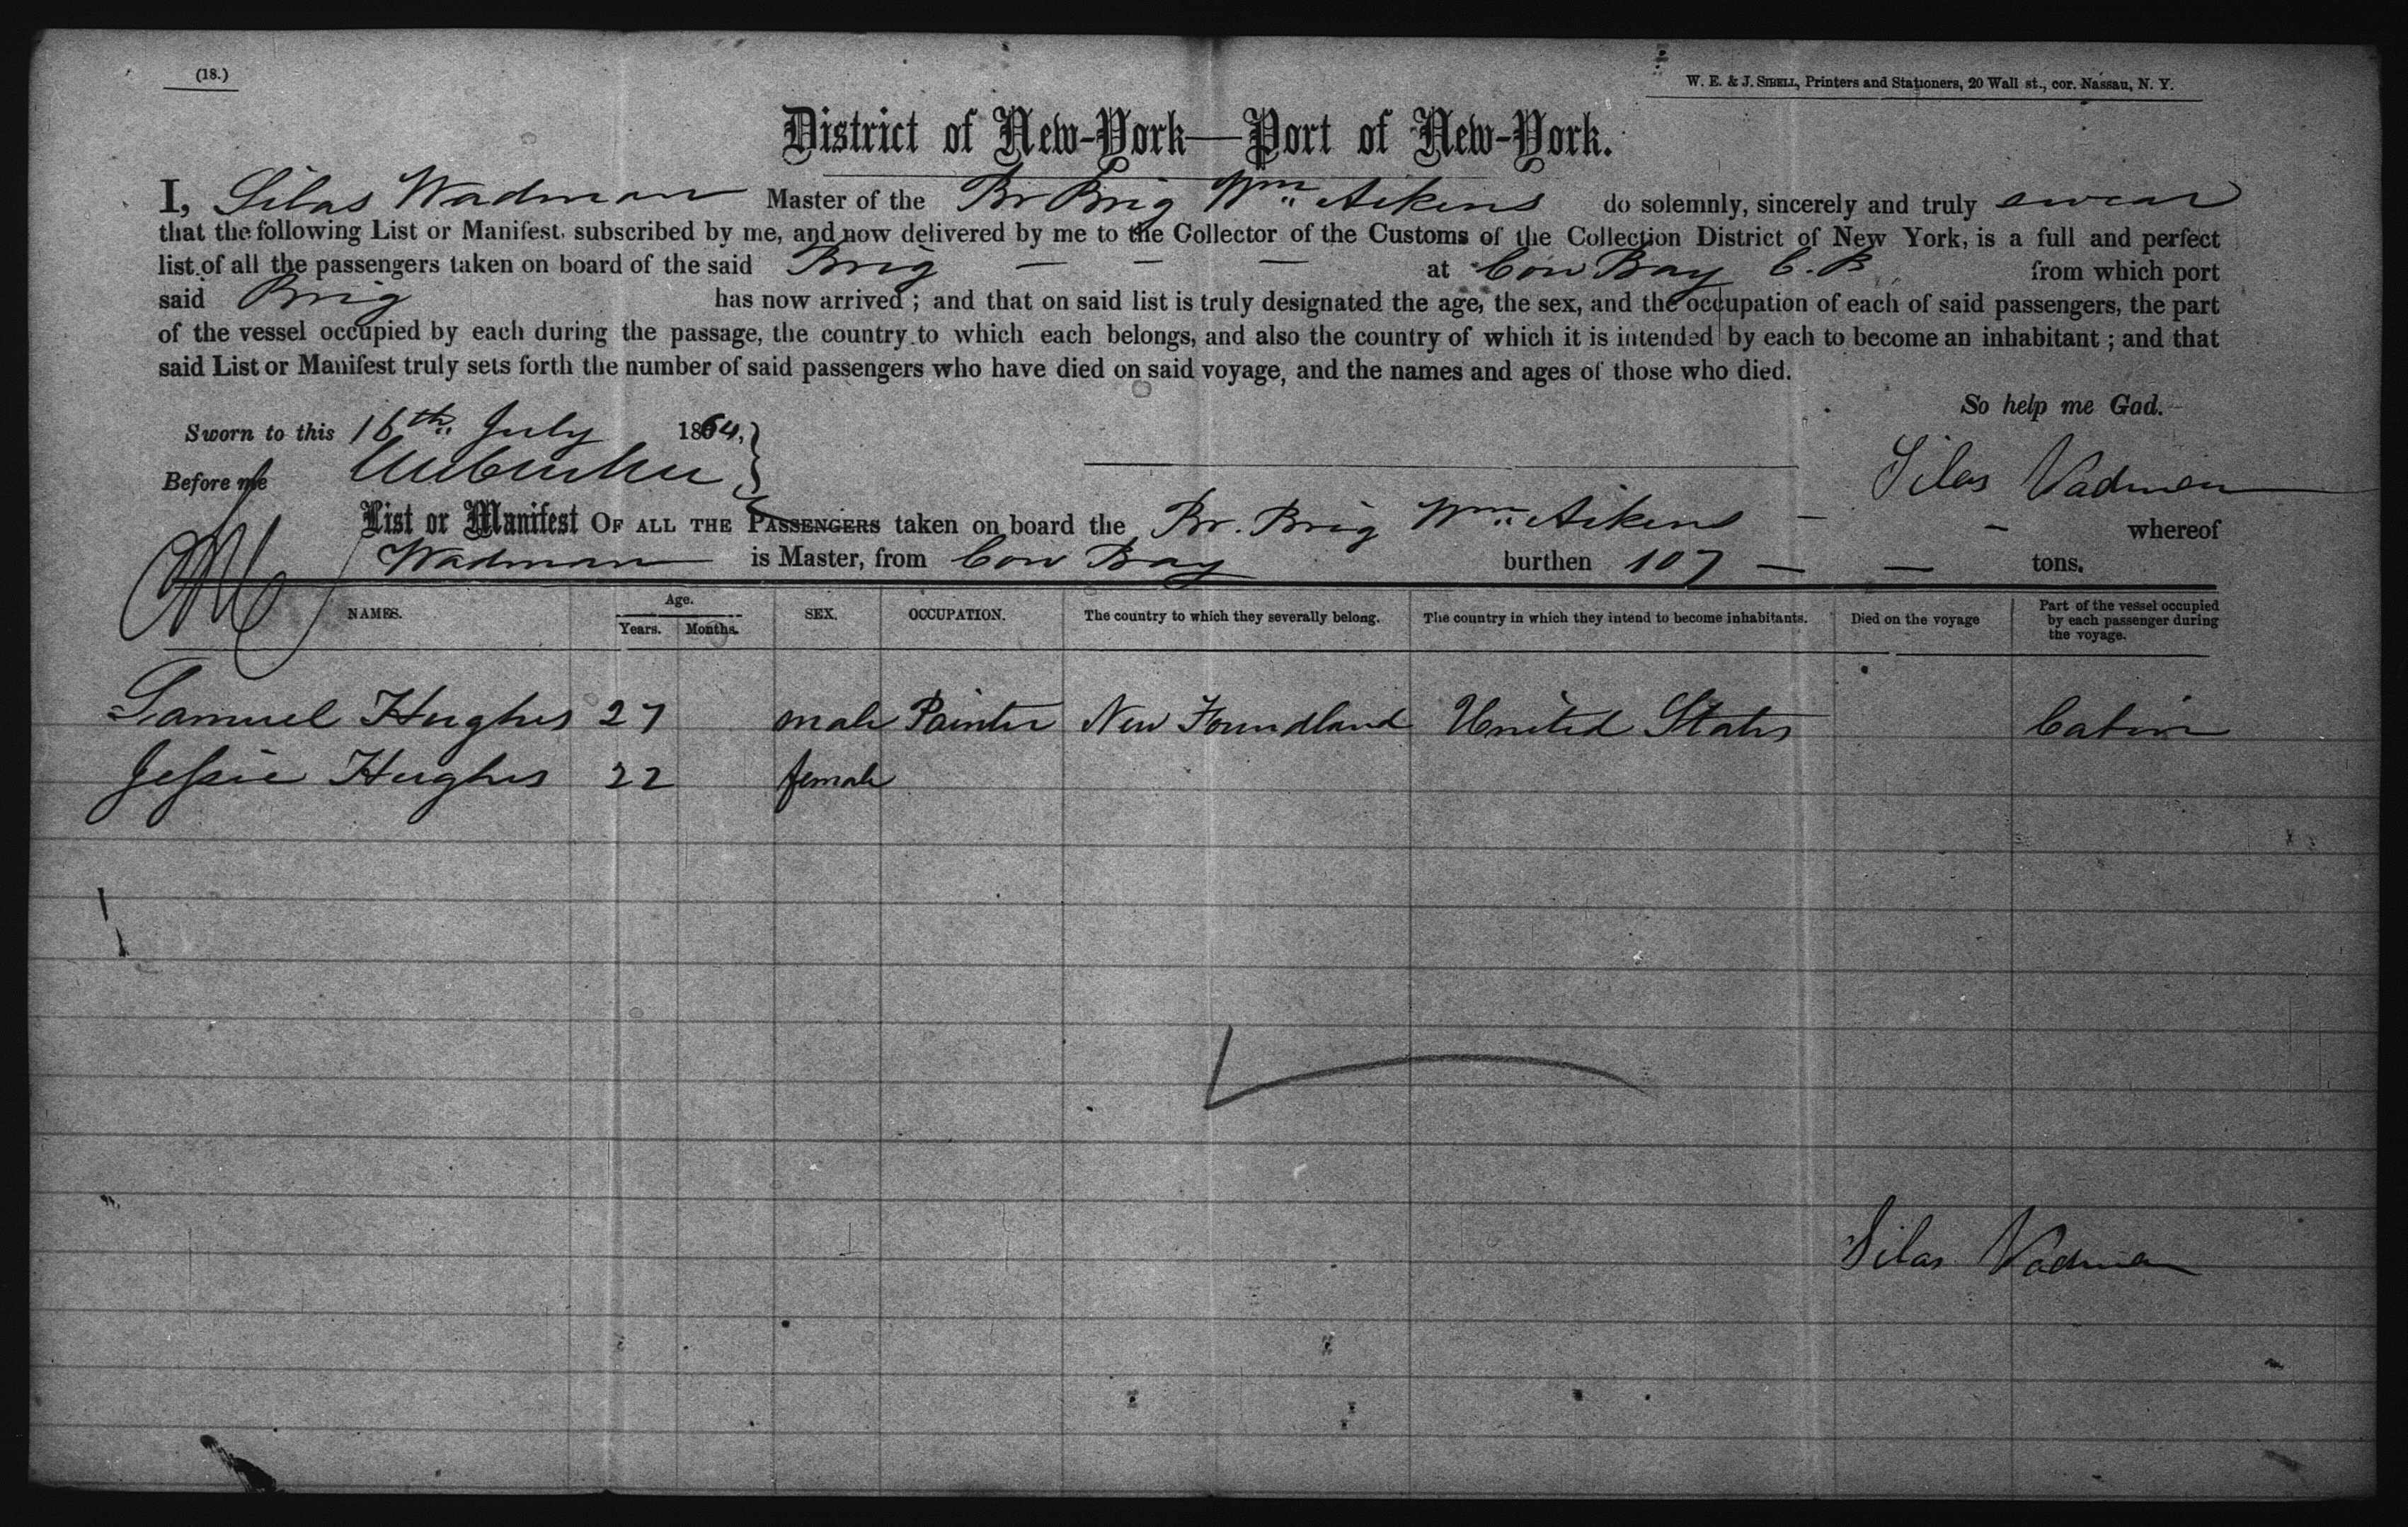 (18.)
W. E. & J. SIBELL, Printers and Stationers, 20 Wall st., cor. Nassau, N. Y.
District of New-York—Port of New-York.
I, Silas Wadman Master of the Br Brig Wm Aikens do solemnly, sincerely and truly swear
that the following List or Manifest, subscribed by me, and now delivered by me to the Collector of the Customs of the Collection District of New York, is a full and perfect
list of all the passengers taken on board of the said Brig — — — at Cow Bay C. B from which port
said Brig has now arrived ; and that on said list is truly designated the age, the sex, and the occupation of each of said passengers, the part
of the vessel occupied by each during the passage, the country to which each belongs, and also the country of which it is intended by each to become an inhabitant ; and that
said List or Manifest truly sets forth the number of said passengers who have died on said voyage, and the names and ages of those who died.
So help me God.
Sworn to this 16th July 1864,
Before me
Silas Wadman
List or Manifest OF ALL THE PASSENGERS taken on board the Br. Brig Wm Aikens — — whereof
Wadman is Master, from Cow Bay burthen 107 — — tons.
NAMES. Age. Years. Months. SEX. OCCUPATION. The country to which they severally belong. The country in which they intend to become inhabitants. Died on the voyage Part of the vessel occupied by each passenger during the voyage.
Samuel Hughes 27 male Painter New Foundland United States Cabin
Jessie Hughes 22 female
Silas Wadman